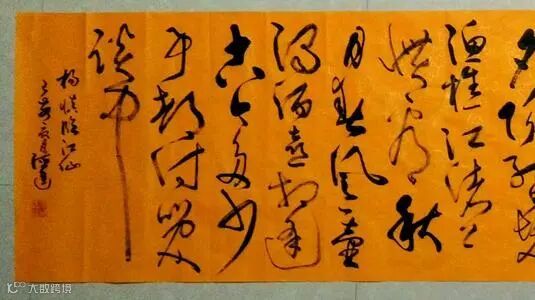 夕阳红
渔樵江渚上
惯看秋
月春风一壶
浊酒喜相逢
古今多少
事都付笑
谈中
杨慎临江仙
大数跨境